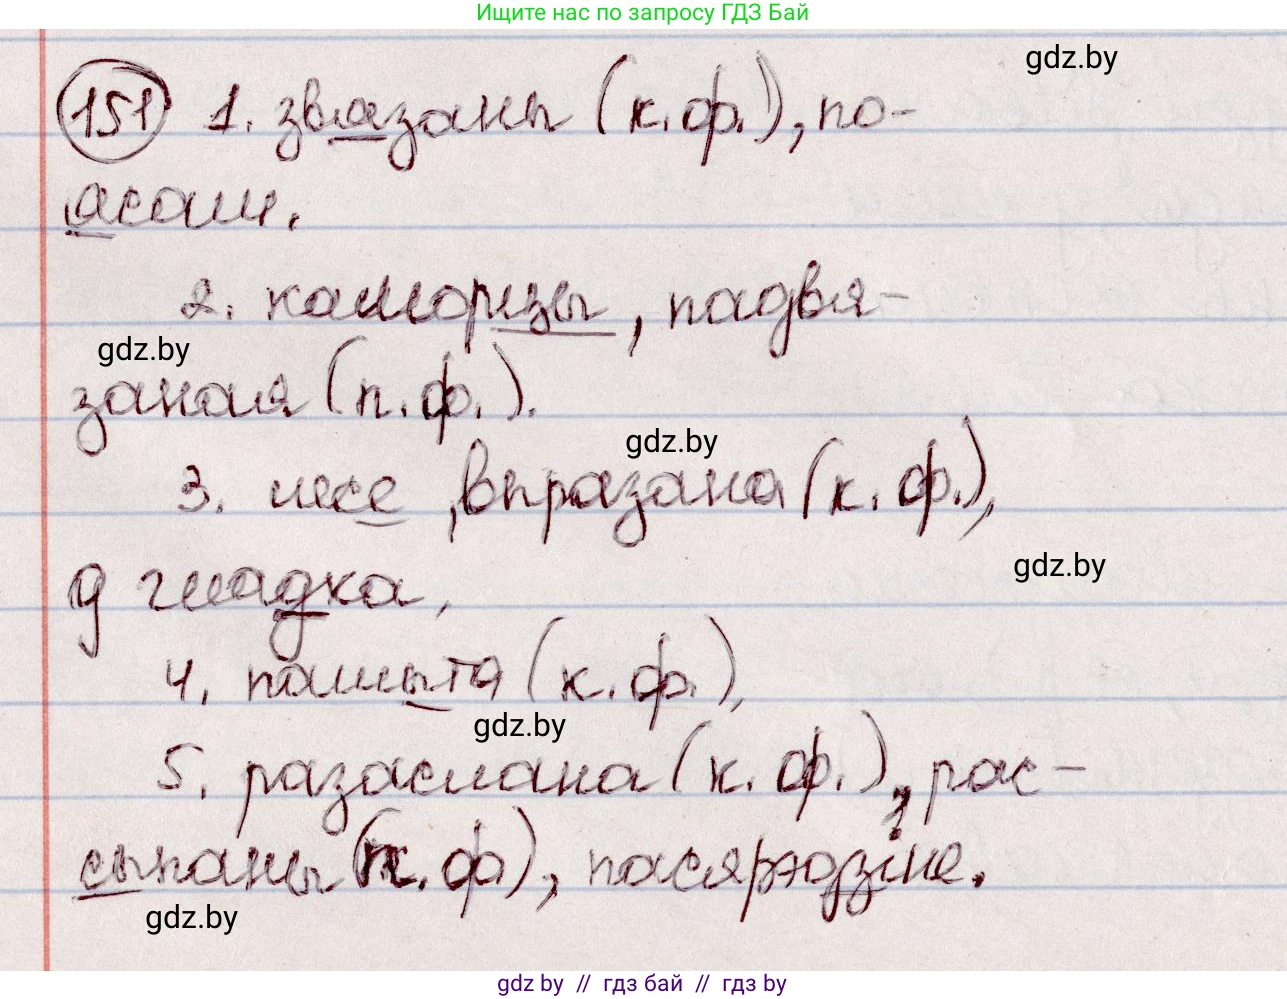 Ищите нас по запросу ГДЗ Бай
gdz.by
151 1. звязаны (к.ф.), по-
ясам.
2. каморцы, падвя-
gdz.by
заная (п.ф.).
gdz.by
3. шсе, впразана (к.ф.),
gdz.by
д гладка,
4. пашыта (к.ф.),
gdz.by
5. разаслана (к.ф.), рас-
сыпаны (к.ф), пасярэдзіне.
gdz.by
gdz.by // гдз бай // гдз by